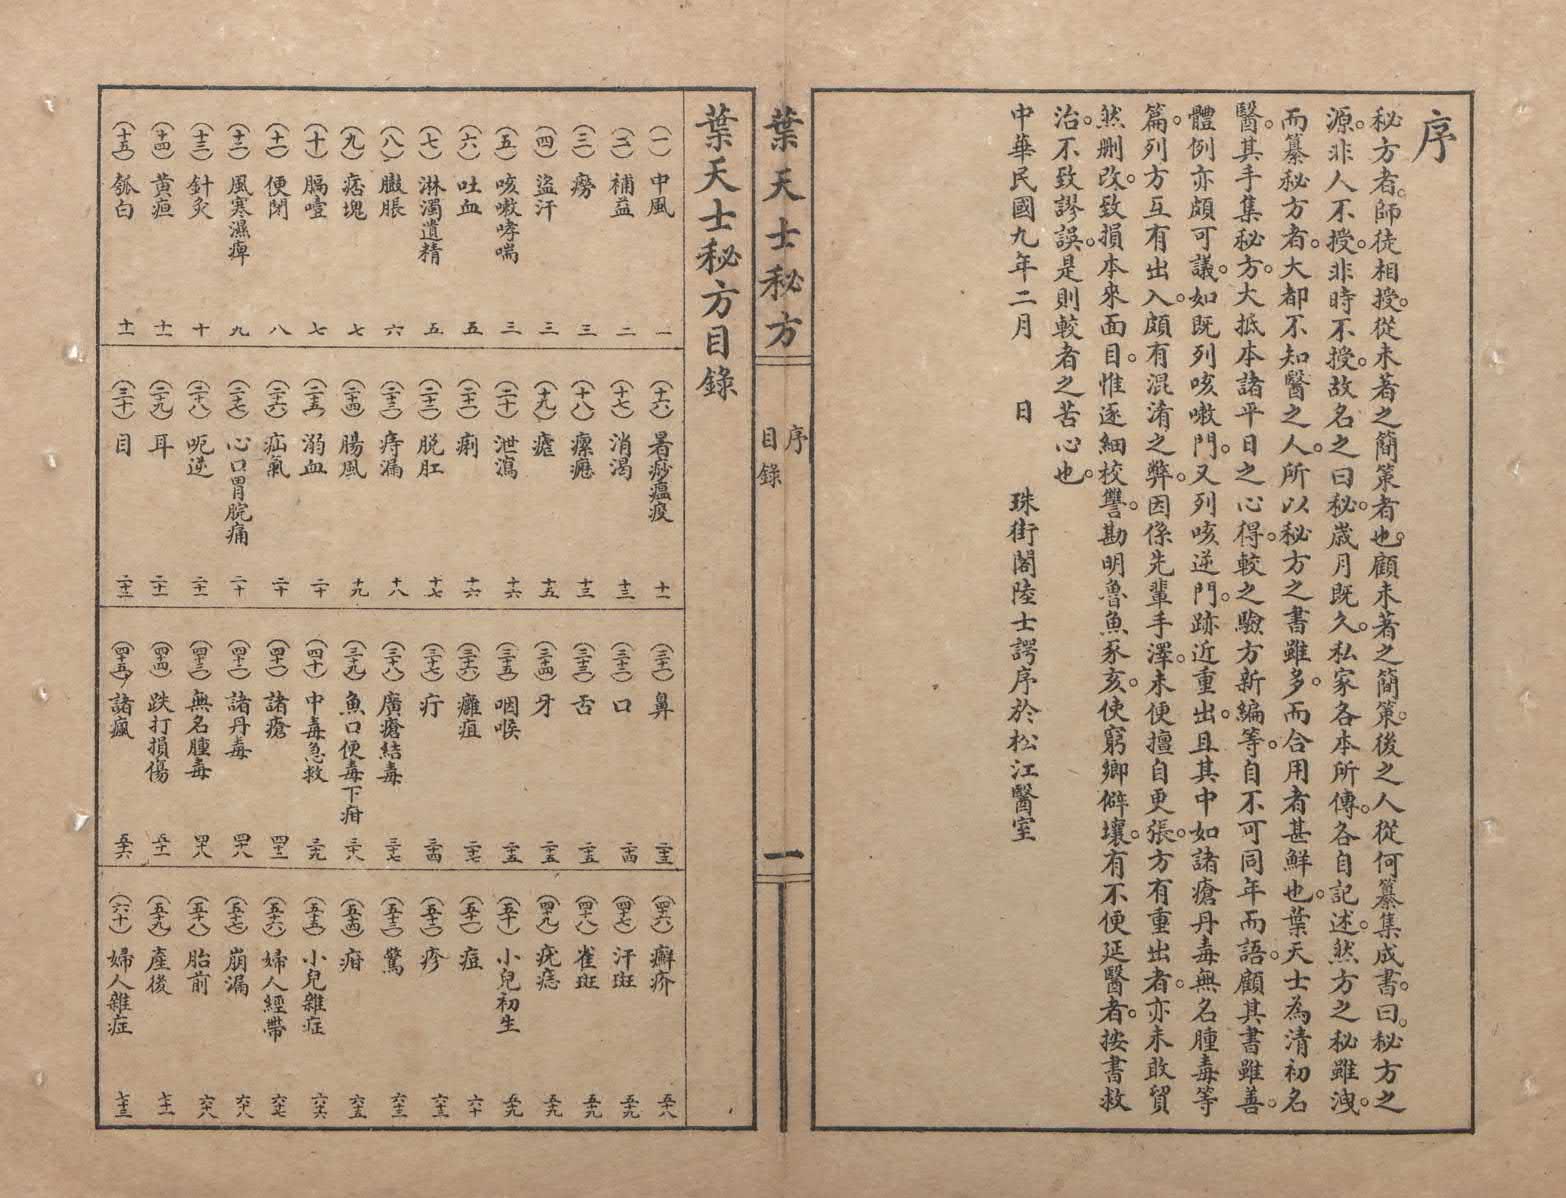 序
秘方者。師徒相授。從未著之簡策者也。顧未著之簡策。後之人從何纂集成書。曰。秘方之
源。非人不授。非時不授。故名之曰秘。歲月既久。私家各本所傳。各自記述。然方之秘雖洩。
而纂秘方者。大都不知醫之人。所以秘方之書雖多。而合用者甚鮮也。葉天士為清初名
醫。其手集秘方。大抵本諸平日之心得。較之驗方新編等。自不可同年而語。顧其書雖善。
體例亦頗可議。如既列咳嗽門。又列咳逆門。跡近重出。且其中如諸瘡丹毒無名腫毒等
篇。列方互有出入。頗有混淆之弊。因係先輩手澤。未便擅自更張。方有重出者。亦未敢貿
然刪改。致損本來面目。惟逐細校讐。勘明魯魚豕亥。使窮鄉僻壤。有不便延醫者。按書救
治。不致謬誤。是則較者之苦心也。
中華民國九年二月　日　珠街閣陸士諤序於松江醫室
葉天士秘方
序
目錄
一
葉天士秘方目錄
（一）中風　一
（二）補益　二
（三）癆　三
（四）盜汗　三
（五）咳嗽哮喘　三
（六）吐血　五
（七）淋濁遺精　五
（八）臌脹　六
（九）痞塊　七
（十）膈噎　七
（十一）便閉　八
（十二）風寒濕痺　九
（十三）針灸　十
（十四）黃疸　十一
（十五）瓠白　十一
（十六）暑痧瘟疫　十一
（十七）消渴　十三
（十八）瘰癧　十三
（十九）瘧　十五
（二十）泄瀉　十六
（二十一）痢　十六
（二十二）脱肛　十七
（二十三）痔漏　十八
（二十四）腸風　十九
（二十五）溺血　二十
（二十六）疝氣　二十
（二十七）心口胃脘痛　二十
（二十八）呃逆　二十一
（二十九）耳　二十一
（三十）目　二十二
（三十一）鼻　二十三
（三十二）口　二十四
（三十三）舌　二十五
（三十四）牙　二十五
（三十五）咽喉　二十五
（三十六）癰疽　二十七
（三十七）疔　三十四
（三十八）廣瘡結毒　三十七
（三十九）魚口便毒下疳　三十八
（四十）中毒急救　三十九
（四十一）諸瘡　四十二
（四十二）諸丹毒　四十八
（四十三）無名腫毒　四十八
（四十四）跌打損傷　五十一
（四十五）諸瘋　五十六
（四十六）癬疥　五十八
（四十七）汗斑　五十九
（四十八）雀斑　五十九
（四十九）疣痣　五十九
（五十）小兒初生　五十九
（五十一）痘　六十
（五十二）疹　六十三
（五十三）驚　六十三
（五十四）疳　六十五
（五十五）小兒雜症　六十六
（五十六）婦人經帶　六十七
（五十七）崩漏　六十八
（五十八）胎前　六十八
（五十九）產後　七十一
（六十）婦人雜症　七十三